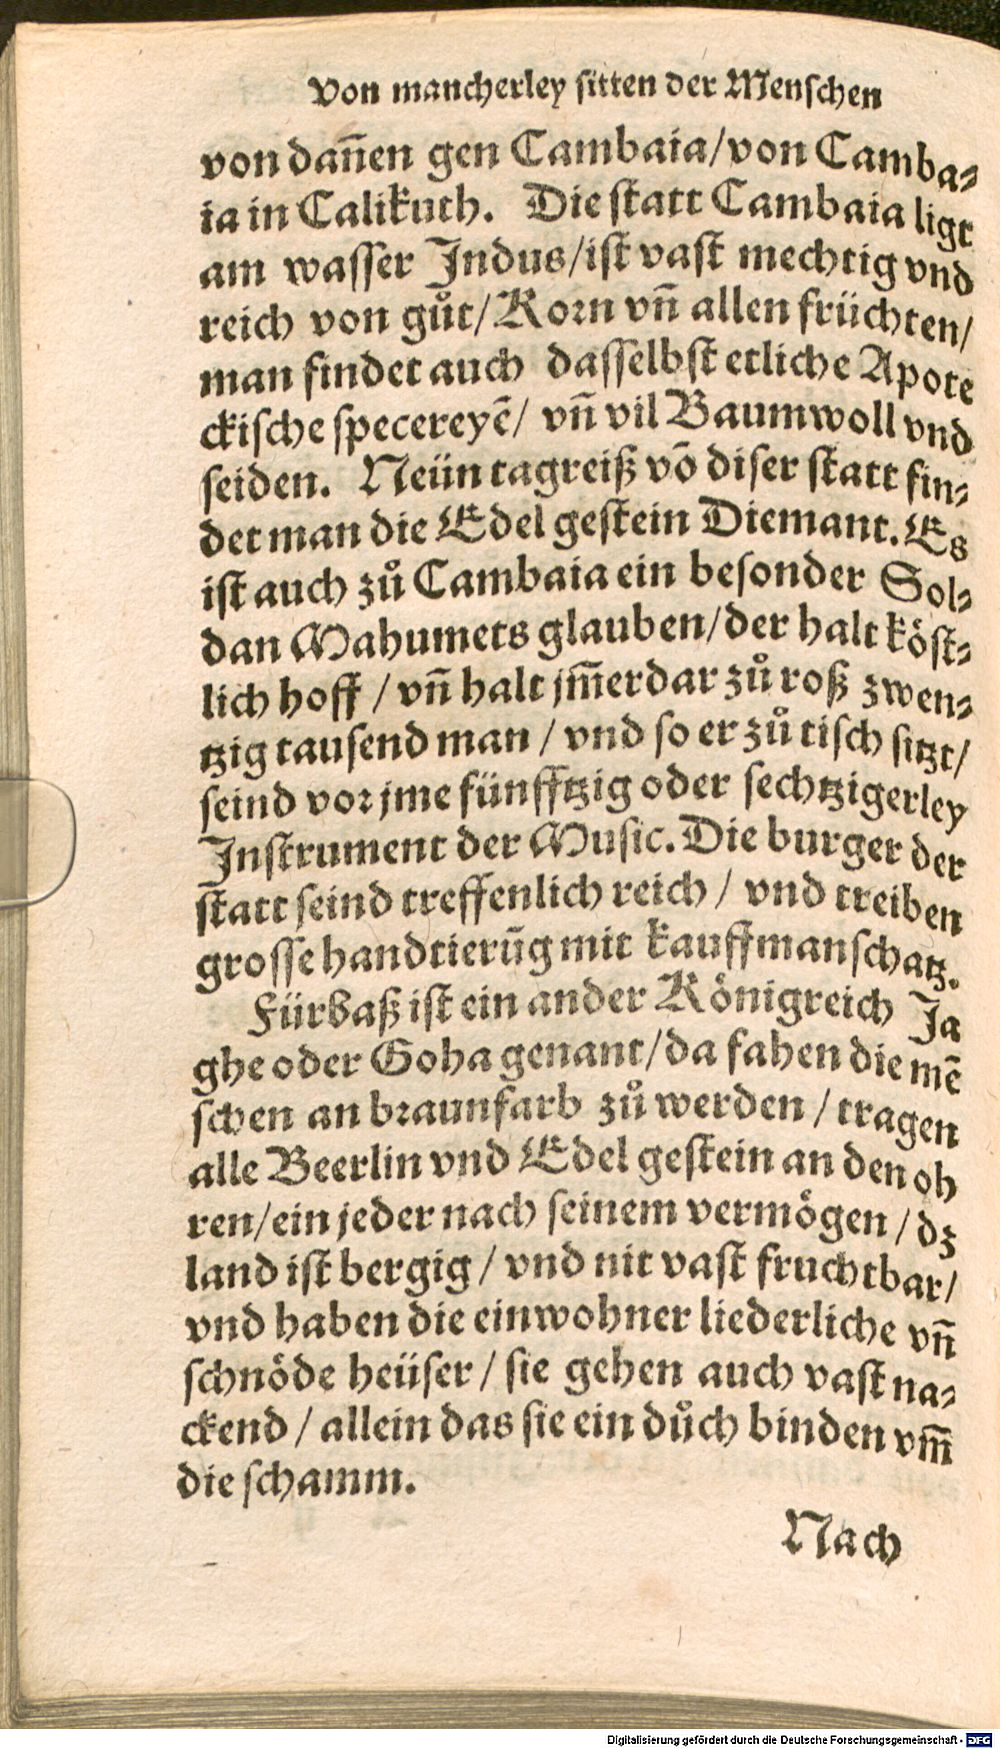 Von mancherley ſitten der Menſchen
von dañen gen Cambaia/von Camba⸗
ia in Calikuth. Die ſtatt Cambaia ligt
am waſſer Indus/iſt vaſt mechtig vnd
reich von gůt/Korn vñ allen früchten/
man findet auch daſſelbſt etliche Apote
ckiſche ſpecereyẽ/ vñ vil Baumwoll vnd
ſeiden. Neün tagreiß võ diſer ſtatt fin⸗
det man die Edel geſtein Diemant. Es
iſt auch zů Cambaia ein beſonder Sol⸗
dan Mahumets glauben/der halt köſt⸗
lich hoff / vñ halt jm̃erdar zů roß zwen⸗
tzig tauſend man / vnd ſo er zů tiſch ſitzt/
ſeind vor jme fünfftzig oder ſechtzigerley
Inſtrument der Muſic. Die burger der
ſtatt ſeind treffenlich reich / vnd treiben
groſſe handtierũg mit kauffmanſchatz.
Fürbaß iſt ein ander Königreich Ja
ghe oder Goha genant/da fahen die mẽ
ſchen an braunfarb zů werden / tragen
alle Beerlin vnd Edel geſtein an den oh
ren/ein jeder nach ſeinem vermögen / dz
land iſt bergig / vnd nit vaſt fruchtbar/
vnd haben die einwohner liederliche vñ
ſchnöde heüſer / ſie gehen auch vaſt na⸗
ckend / allein das ſie ein důch binden vm̃
die ſchamm.
Nach
Digitalisierung gefördert durch die Deutsche Forschungsgemeinschaft - DFG